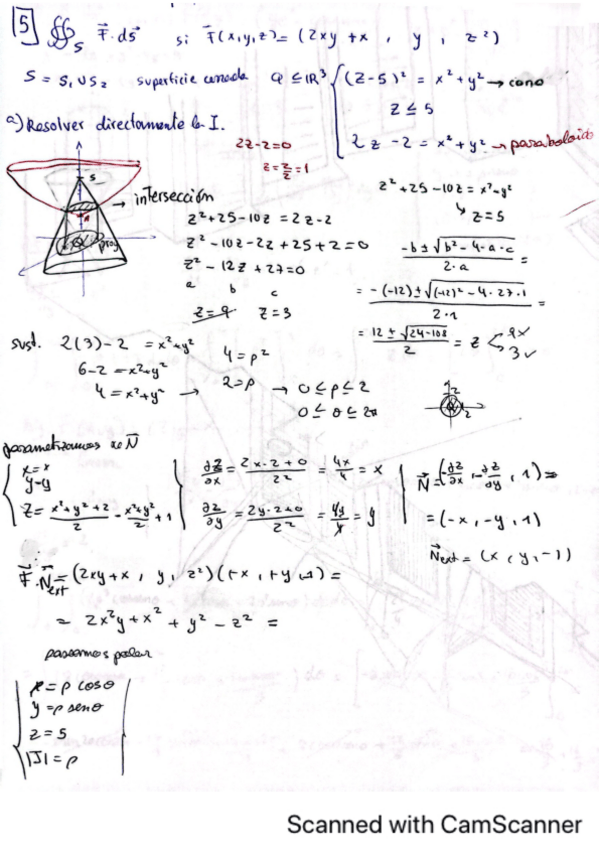 5 ∯_S F⃗·dS⃗ si F⃗(x,y,z)=(2xy+x , y , z²)
S = S₁ ∪ S₂ superficie cerrada Q ⊆ ℝ³ { (z-5)² = x²+y² → cono
z ≤ 5
2z-2 = x²+y² → paraboloide
a) Resolver directamente la I.
2z-2=0
z=2/2=1
5
→ intersección
proy
z²+25-10z = 2z-2
z²-10z-2z+25+2=0
z²-12z+27=0
a b c
z=9 z=3
z²+25-10z=x²+y²
↳ z=5
(-b±√(b²-4·a·c))/(2·a) =
= (-(-12)±√((-12)²-4·27·1))/(2·1) =
= (12±√(24-108))/2 = z < 9x 3✓
sust. 2(3)-2 = x²+y²
6-2 = x²+y²
4 = x²+y² →
4=ρ²
2=ρ → 0≤ρ≤2
0≤θ≤2π
2
2
parametrizamos
{ x=x
y=y
z = (x²+y²+2)/2 = (x²+y²)/2 + 1
∂z/∂x = (2x·2+0)/2² = 4x/4 = x
∂z/∂y = (2y·2+0)/2² = 4y/4 = y
N⃗=(-∂z/∂x, -∂z/∂y, 1)=
=(-x,-y,1)
N⃗ext = (x,y,-1)
F⃗·N⃗ext = (2xy+x, y, z²)(+x,+y,-1)=
= 2x²y+x²+y²-z² =
pasamos polar
{ x=ρ cosθ
y=ρ senθ
z=5
|J|=ρ
Scanned with CamScanner